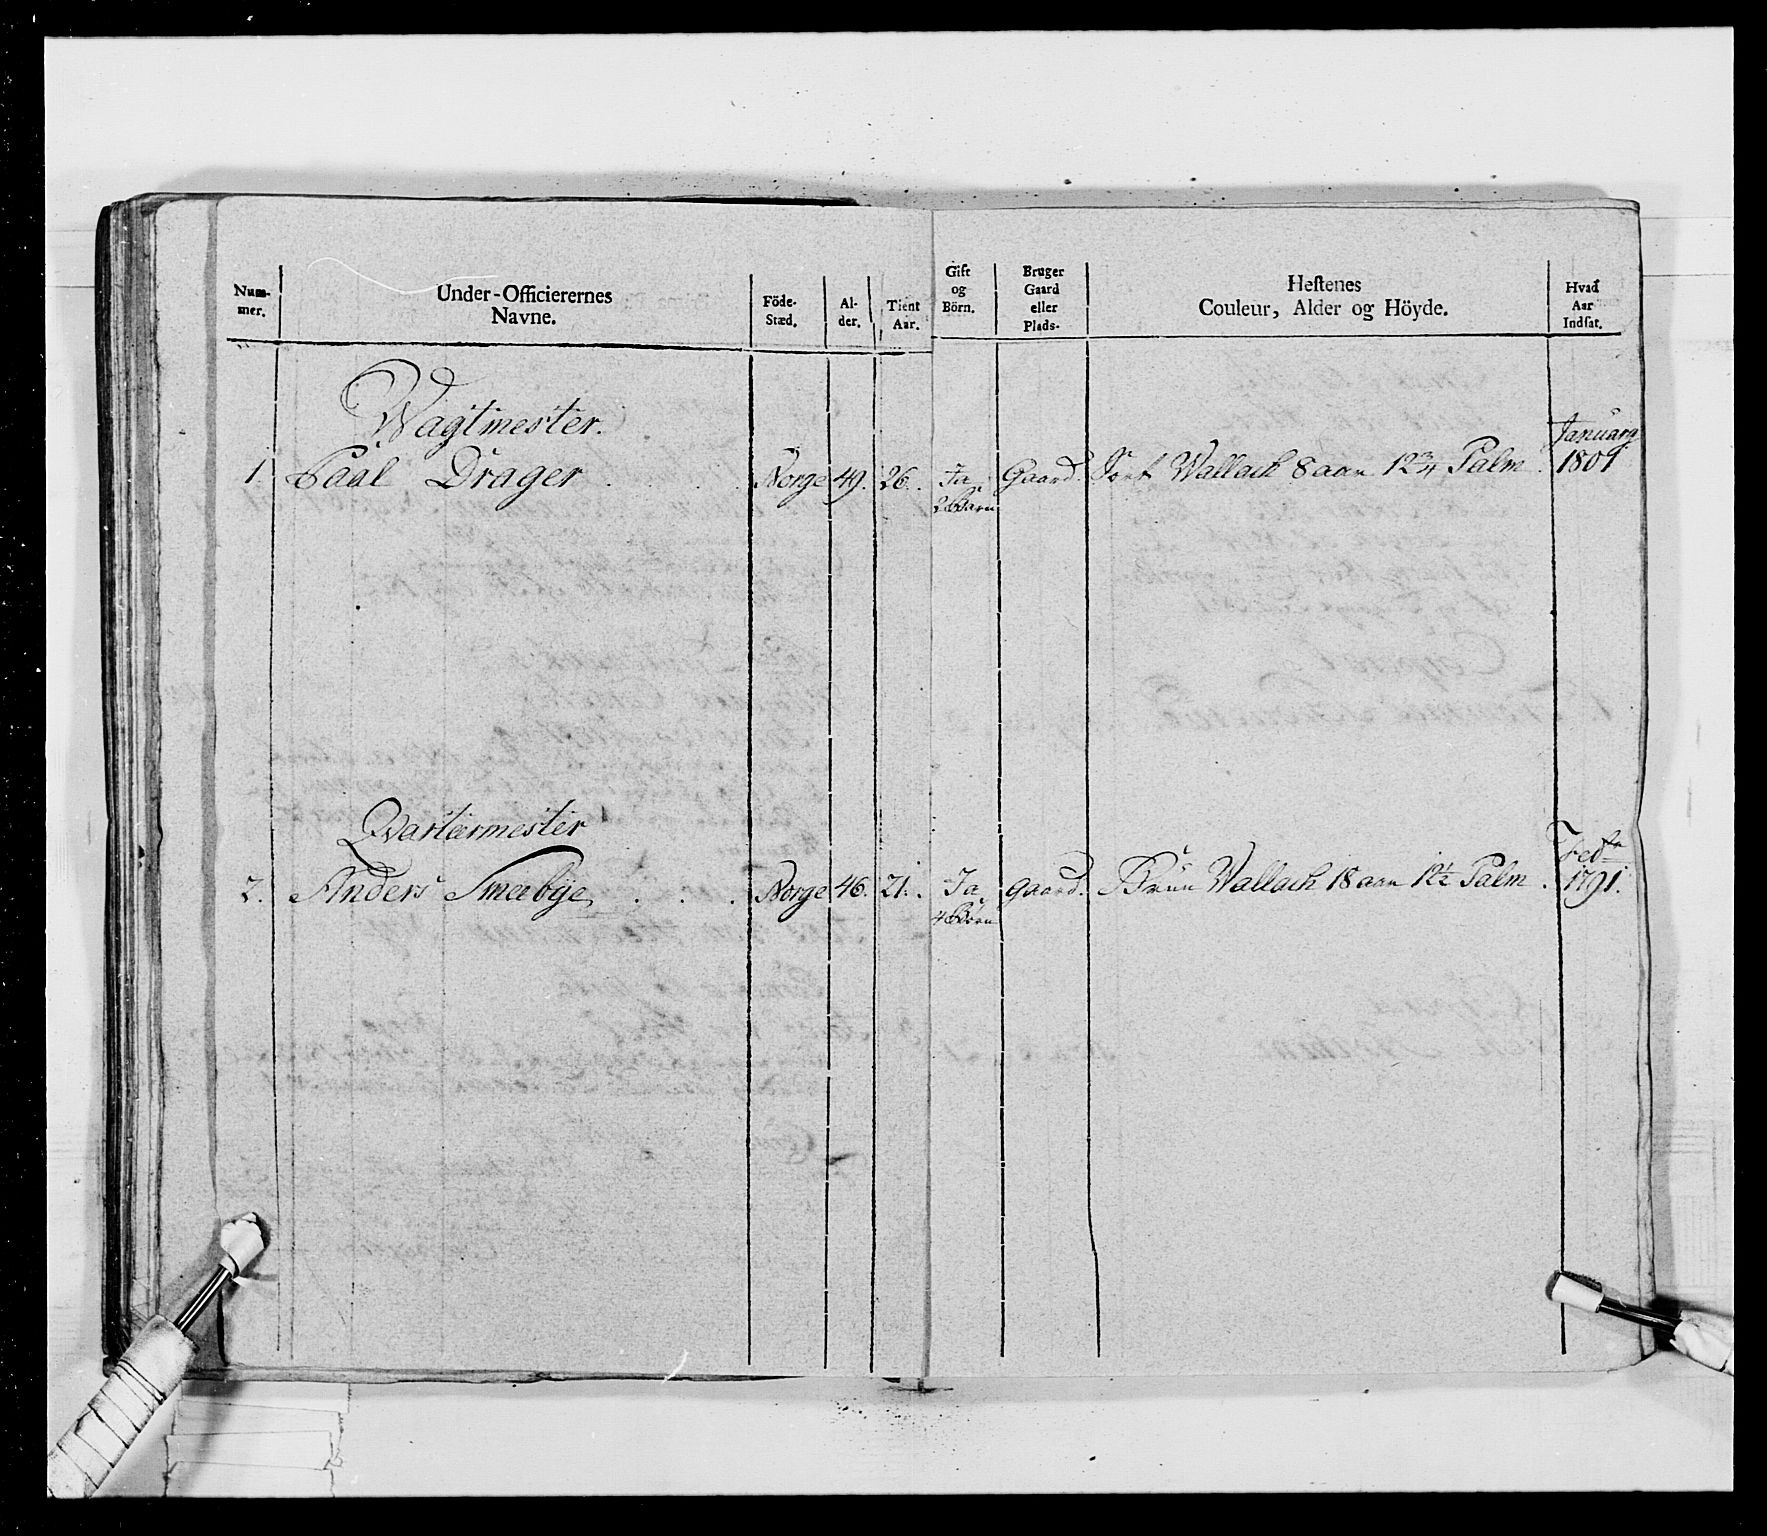 Num-
mer.
Under-Officierernes
Navne.
Föde-
Stæd.
Al-
der.
Tient
Aar.
Gift
og
Börn.
Bruger
Gaard
eller
Plads.
Hestenes
Couleur, Alder og Höyde.
Hvad
Aar
Indsat.
Wagtmester.
1. Paal Drager . . . Norge 49. 26. Ja Gaard. Sort Wallach 8 aar 12 3/4 Palm. Januarij 1801
2 Barn
Qvartermester
2. Anders Smeebye . . . Norge 46. 21. Ja Gaard. Brun Wallach 18 aar 12 1/2 Palm. Febr 1791.
4 Börn